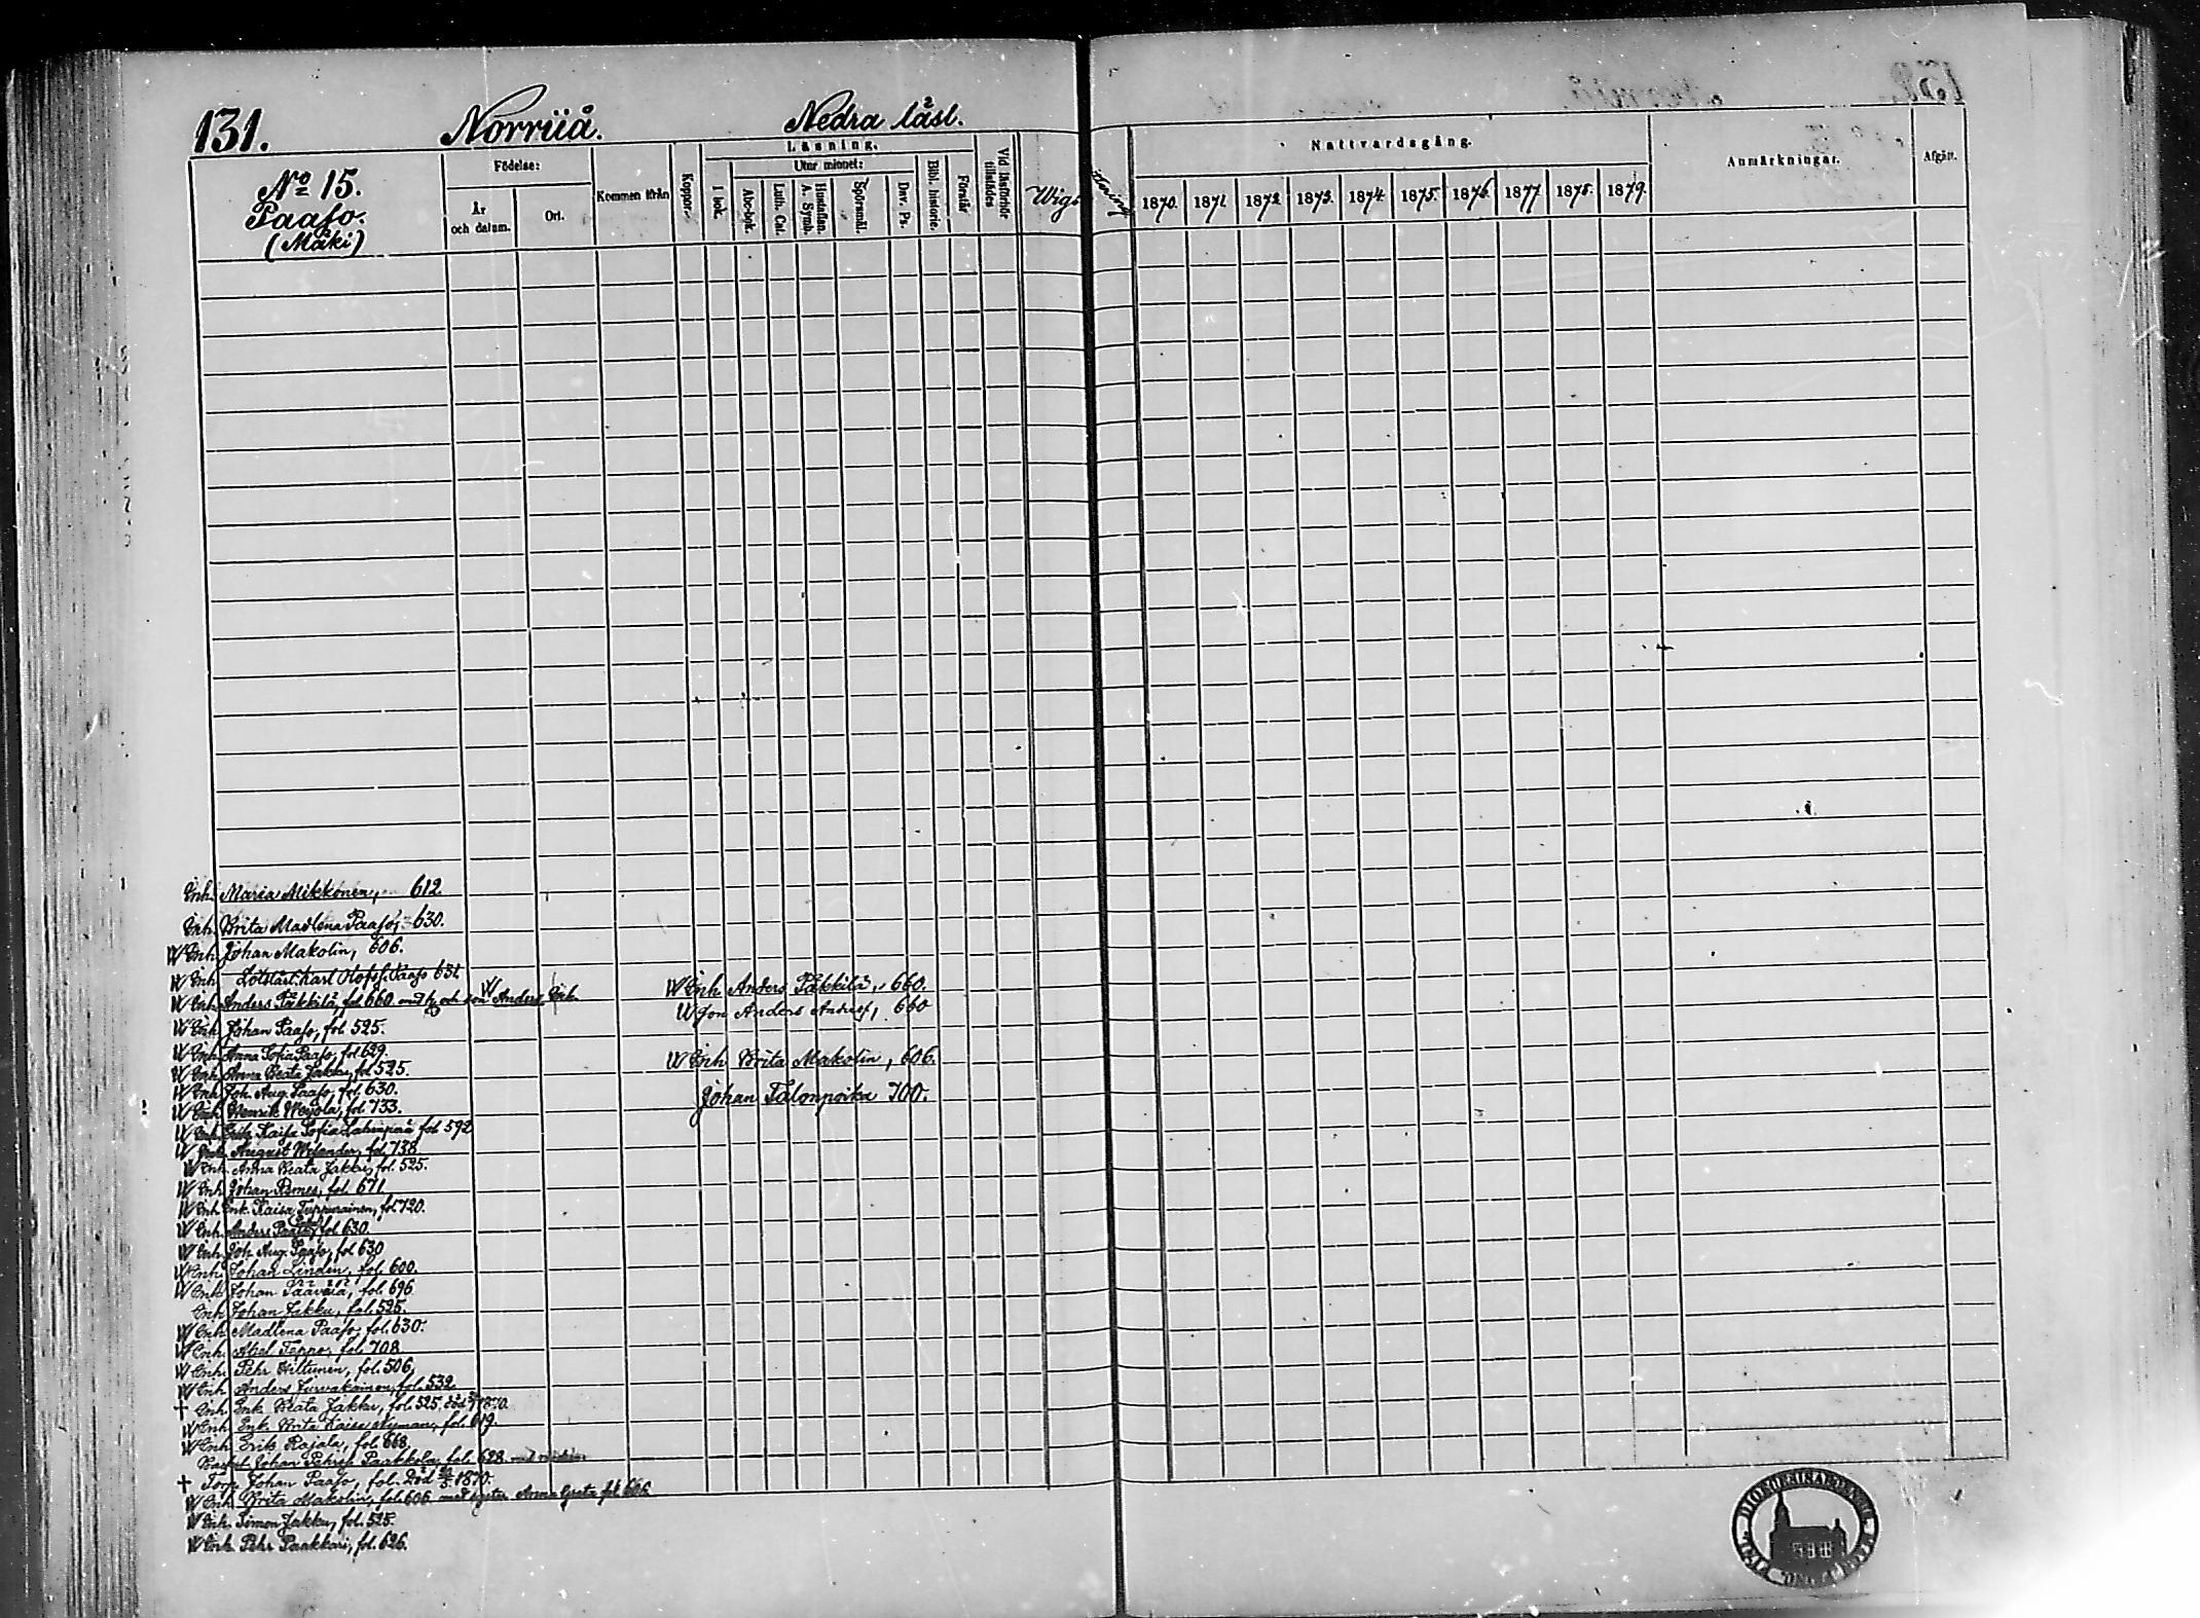 131. Norriiå. Nedra läsl.
No 15.
Paaso.
(Mäki)
Födelse:
År och datum.
Ort.
Kommen ifrån
Koppor.
Läsning.
I bok.
Utur minnet:
Abc-bok.
Luth. Cat.
Hustaflan. A. Symb.
Spörsmål.
Dav. Ps.
Bibl. historie.
Förstår
Vid läsförhör tillstädes
Wigd
Nattvardsgång.
1870. 1871. 1872. 1873. 1874. 1875. 1876. 1877 1878. 1879.
Anmärkningar.
Afgått.
Inh. Maria Mikkonen, 612.
Inh. Brita Madlena Paaso, 630.
W Inh. Johan Makolin, 606.
W Inh. Karl Olofss. Paaso 631
W Inh. Anders Päkkilä, fol 660 och son W Anders Enk.
W Inh. Johan Paaso, fol. 525.
W Inh. Anna Sofia Paaso, fol 629.
W Inh. Anna Beata Jakku, fol 525.
W Inh. Joh. Aug. Paaso, fol. 630.
W Inh. Henrik Weijola, fol. 733.
W Inh. Kaisa Sofia fol 592
W Inh. August Welander, fol. 738
W Inh. Anna Beata Jakku, fol. 525.
W Inh. Johan fol. 671
W Inh. Enk. Kaisa Tuppurainen, fol 720.
W Inh. Anders Paaso, fol. 630.
W Inh. Joh. Aug. Paaso, fol 630
W Inh. Johan Linden, fol. 600.
W Inh. Johan Pääverä, fol. 696
Inh. Johan Jakku, fol. 525.
W Inh. Madlena Paaso, fol. 630.
W Inh. Abel Teppo, fol. 708
W Inh. Pehr Hiltunen, fol. 506,
W Inh. Anders Turvakainen, fol. 532
† Inh. Enk. Beata Jakku, fol. 525, död 1870.
W Inh. Enk. Brita Kaisa Nyman, fol. 619.
W Inh. Erik Rajala, fol. 668.
Johan Pehrss. Paakkola, fol. 628.
† Torp. Johan Paaso, fol. Död 1870.
W Inh. Brita Makolin, fol. 606 med syster Anna Greta fol 606
W Inh. Simon Jakku, fol. 525.
W Inh. Pehr Paakkari, fol. 626.
W Inh Anders Päkkilä, 660.
W Son Anders Anderss, 660
W Inh Brita Makolin, 606.
Johan Talonpoika 700.